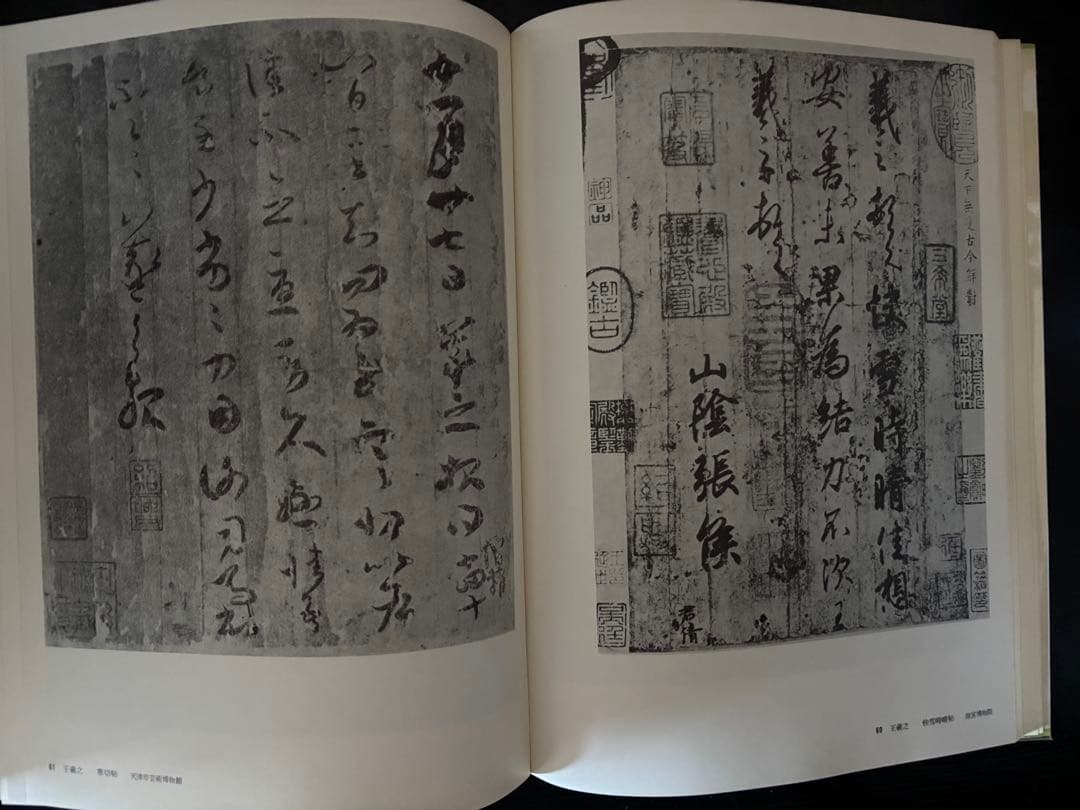 天下無雙古今鮮對
羲之頓首快雪時晴佳想
安善未果為結力不次王
羲之頓首
山陰張侯
君倩
三希堂
神品
鑑古
60 王羲之 快雪時晴帖 故宮博物院
十一月廿七日羲之報得十四
十八日二書知問為慰寒切比各
佳不念憂勞久懸情吾
食至少劣劣力因謝司馬書
不一一羲之報
61 王羲之 寒切帖 天津市芸術博物館